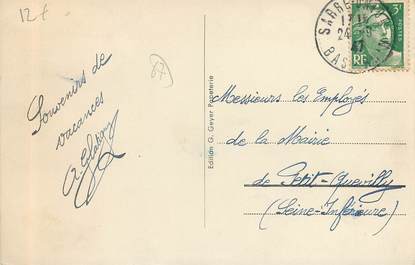 12 f
Souvenirs de
vacances
67
Edition G. Geyer Papeterie
SARRE-UNION
17 H
24
47
BAS
3F
POSTES
RF
Messieurs les Employés
de la Mairie
de Petit-Quevilly
(Seine-Inférieure)